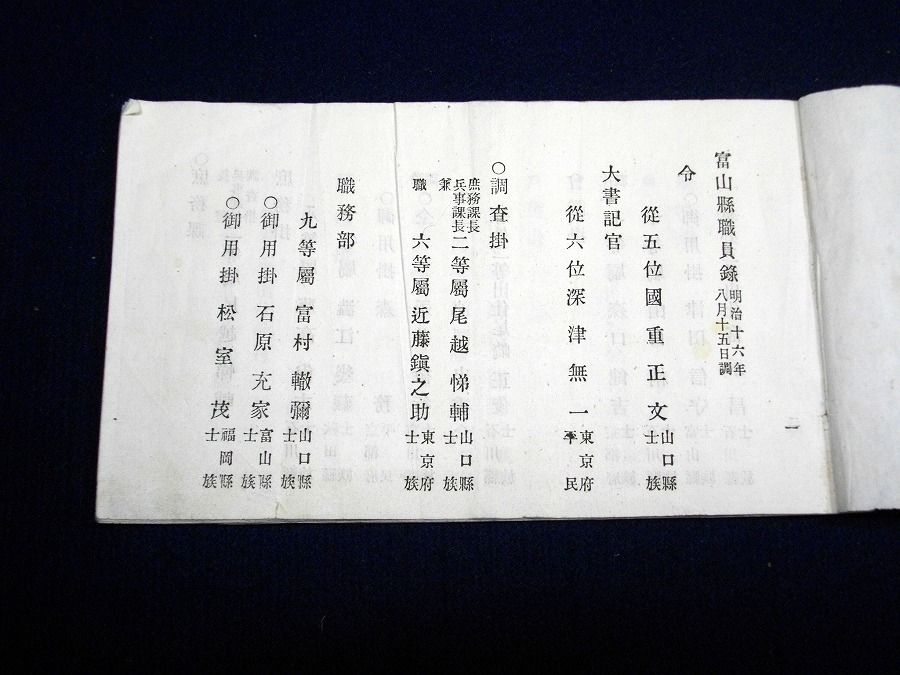 富山縣職員錄 明治十六年八月十五日調
令
從五位國重正文 山口縣士族
大書記官
從六位深津無一 東京府平民
○調査掛
庶務課長兵事課長兼二等屬尾越悌輔 山口縣士族
職 六等屬近藤鎭之助 東京府士族
職務部
九等屬富村轍彌 山口縣士族
○御用掛石原充家 富山縣士族
○御用掛松室茂 福岡縣士族
一